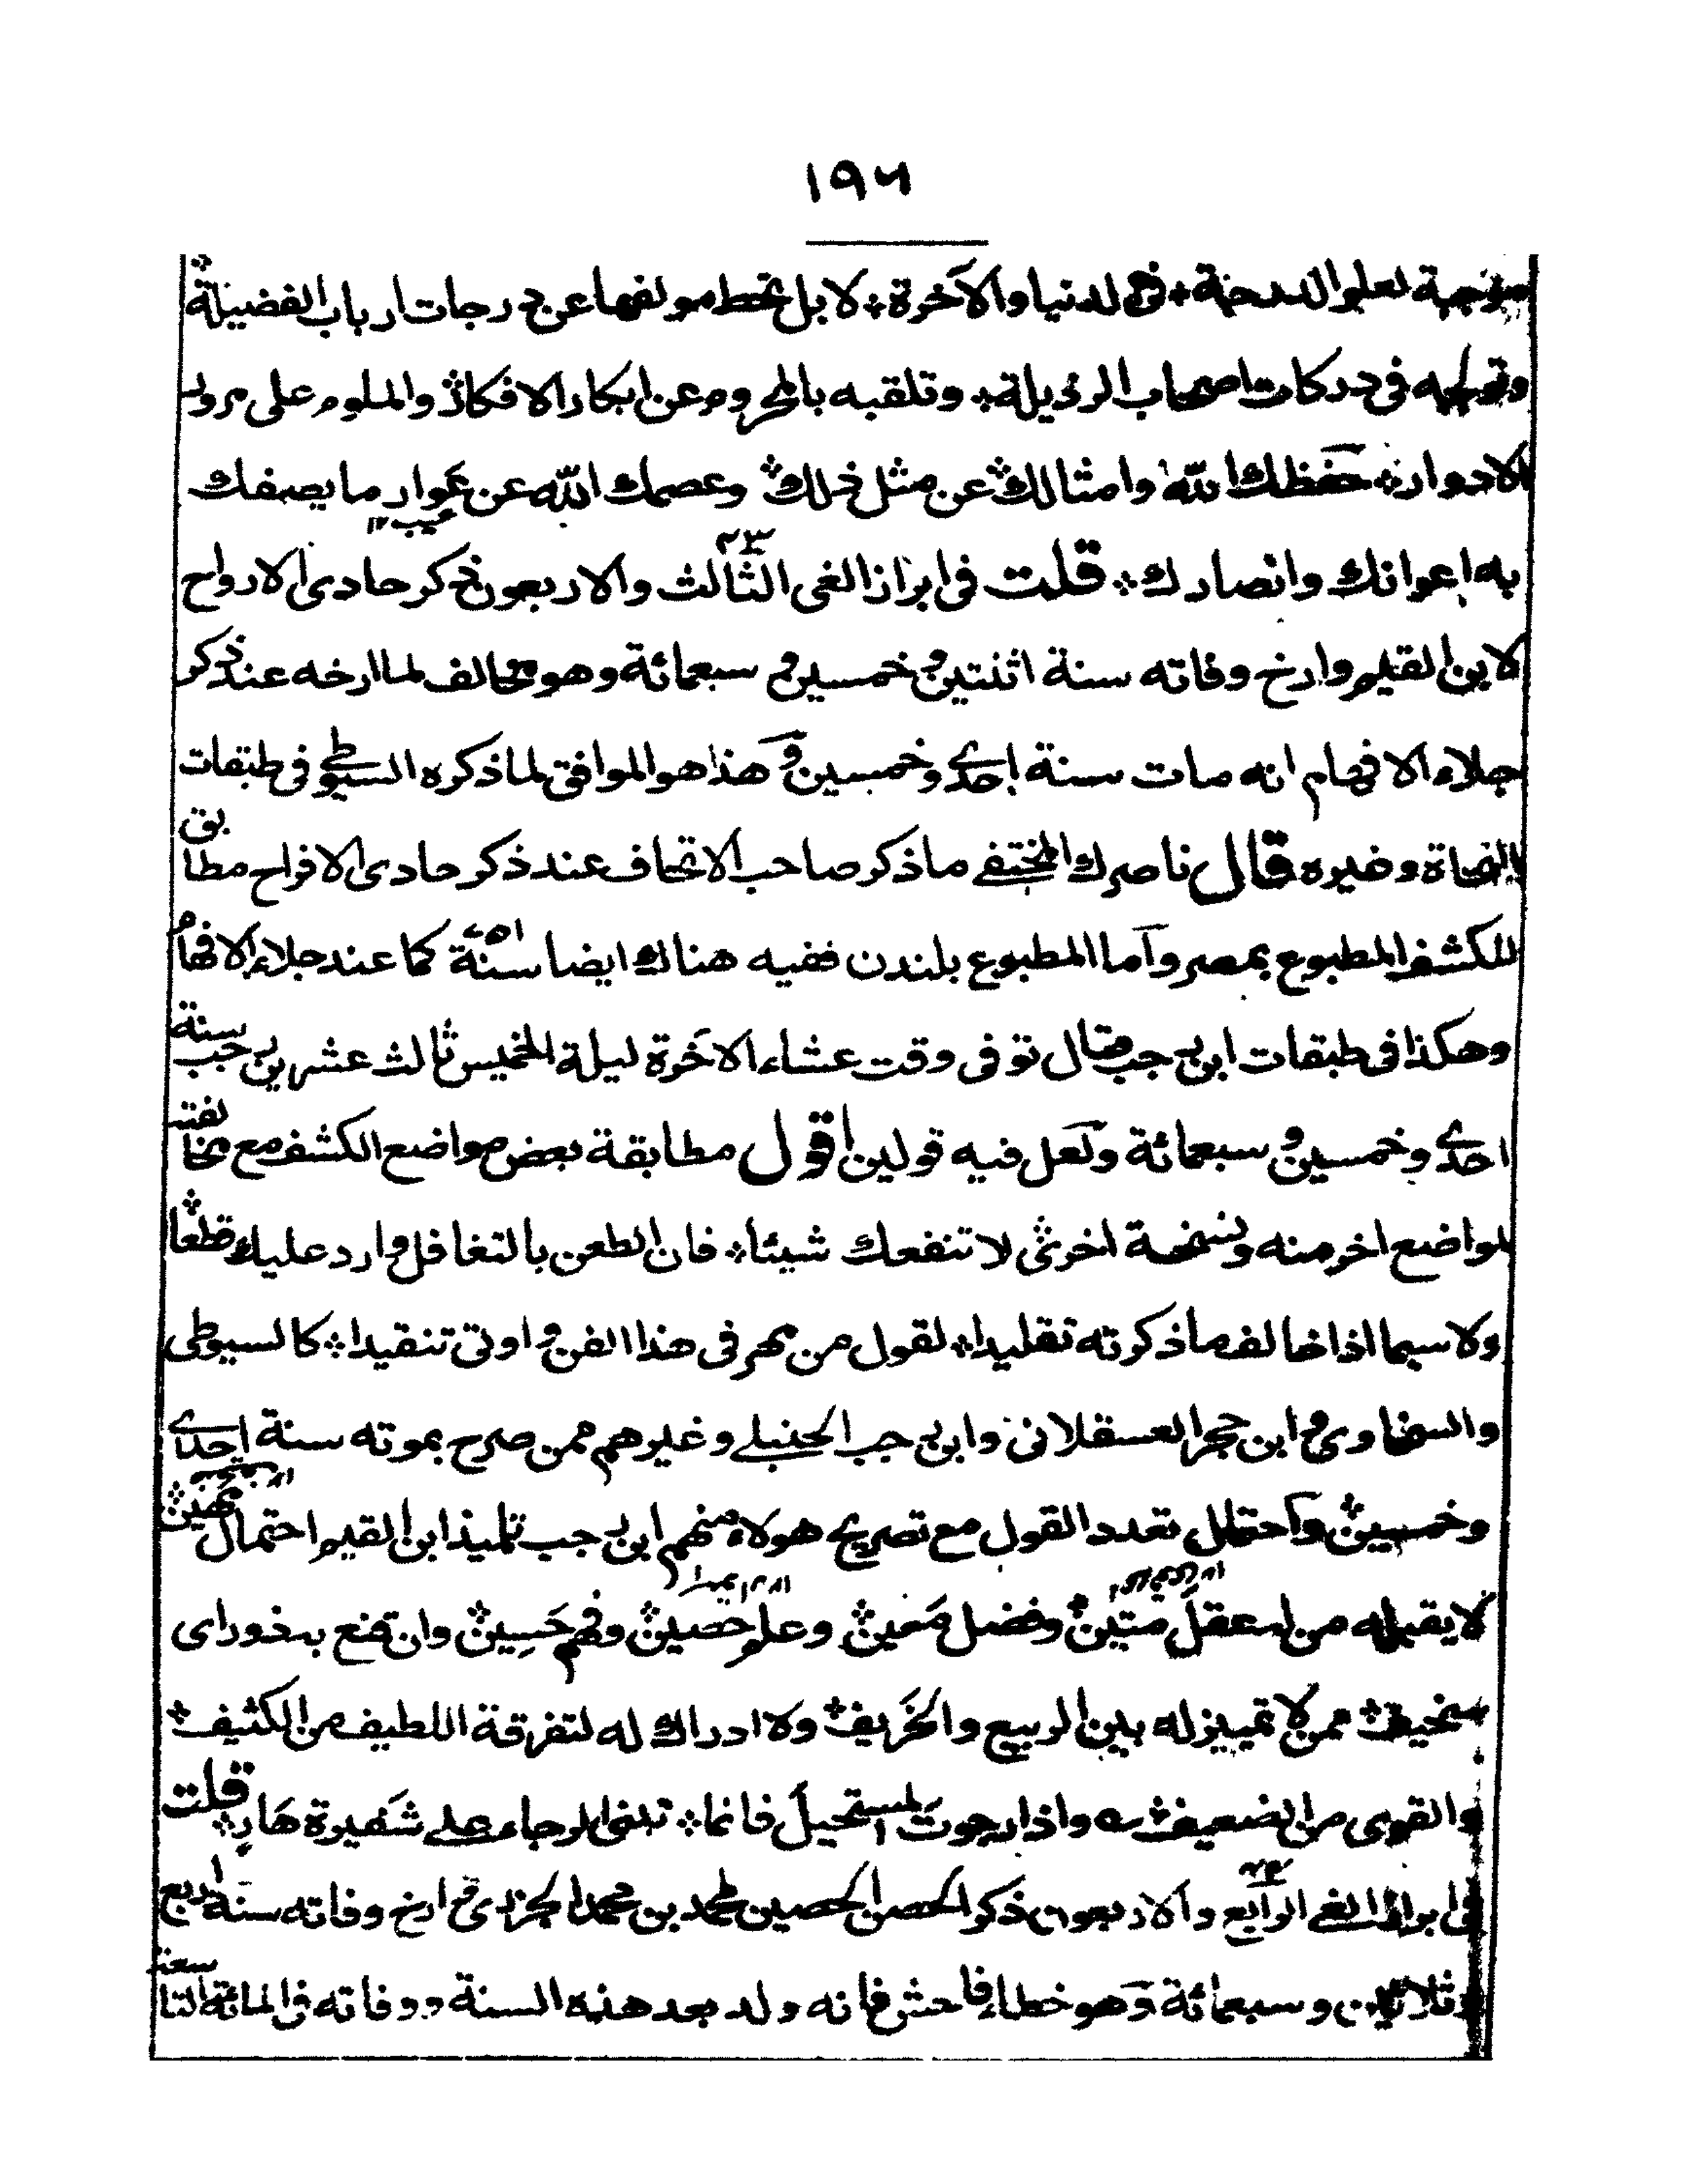 ١٩٦
موجبة لعلو الدرجة ۞ فى الدنيا والآخرة ۞ لا بل تحط مولفها عن درجات ارباب الفضيلة ۞
وتولجه فى دركات اصحاب الرذيلة ۞ وتلقبه بالمحروم عن ابكار الافكار ۞ والملوم على مرور
الادوار ۞ حفظك الله وامثالك ۞ عن مثل ذلك ۞ وعصمك الله عن عوار ما يصفك
عيب ١٢
به اعوانك وانصارك ۞ قلت فى ابراز الغى الثالث والاربعون ذكر حادى الارواح
٤٣
لابن القيم وارخ وفاته سنة اثنتين وخمسين وسبعمائة وهو مخالف لما ارخه عند ذكر
جلاء الافهام انه مات سنة احدى وخمسين وهذا هو الموافق لما ذكره السيوطى فى طبقات
النحاة وغيره قال ناصرك المختفى ما ذكر صاحب الاتحاف عند ذكر حادى الافراح مطابق
للكشف المطبوع بمصر وأما المطبوع بلندن ففيه هناك ايضا سنة ٧٥١ كما عند جلاء الافهام
وهكذا فى طبقات ابن رجب قال توفى وقت عشاء الآخرة ليلة الخميس ثالث عشرين رجب سنة
احدى وخمسين وسبعمائة ولعل فيه قولين اقول مطابقة بعض مواضع الكشف مع مخالفته
لمواضع اخر منه ونسخة اخرى لا تنفعك شيئا ۞ فان الطعن بالتغافل وارد عليك قطعا ۞
ولا سيما اذا خالف ما ذكرته تقليدا ۞ لقول من مهر فى هذا الفن واوتى تنقيدا ۞ كالسيوطى
والسخاوى وابن حجر العسقلانى وابن رجب الحنبلى وغيرهم ممن صرح بموته سنة احدى
وخمسين ۞ واحتمال تعدد القول مع تصريح هولاء ومنهم ابن رجب تلميذ ابن القيم احتمال مهين ۞
لا يقبله من له عقل متين ۞ وفضل ثمين ۞ وعلم حصين ۞ وفهم حسين ۞ وان قنع به ذو راى
سخيف ۞ ممن لا تمييز له بين الربيع والخريف ۞ ولا ادراك له لتفرقة اللطيف من الكثيف ۞
والقوى من الضعيف ۞ واذا رجوت المستحيل فانما ۞ تبنى الرجاء على شفيرة هار ۞ قلت
فى ابراز الغى الرابع والاربعون ذكر الحصن الحصين لمحمد بن محمد الجزرى وارخ وفاته سنة اربع
٤٤
وثلاثين وسبعمائة وهو خطاء فاحش فانه ولد بعد هذه السنة ووفاته فى المائة التاسعة